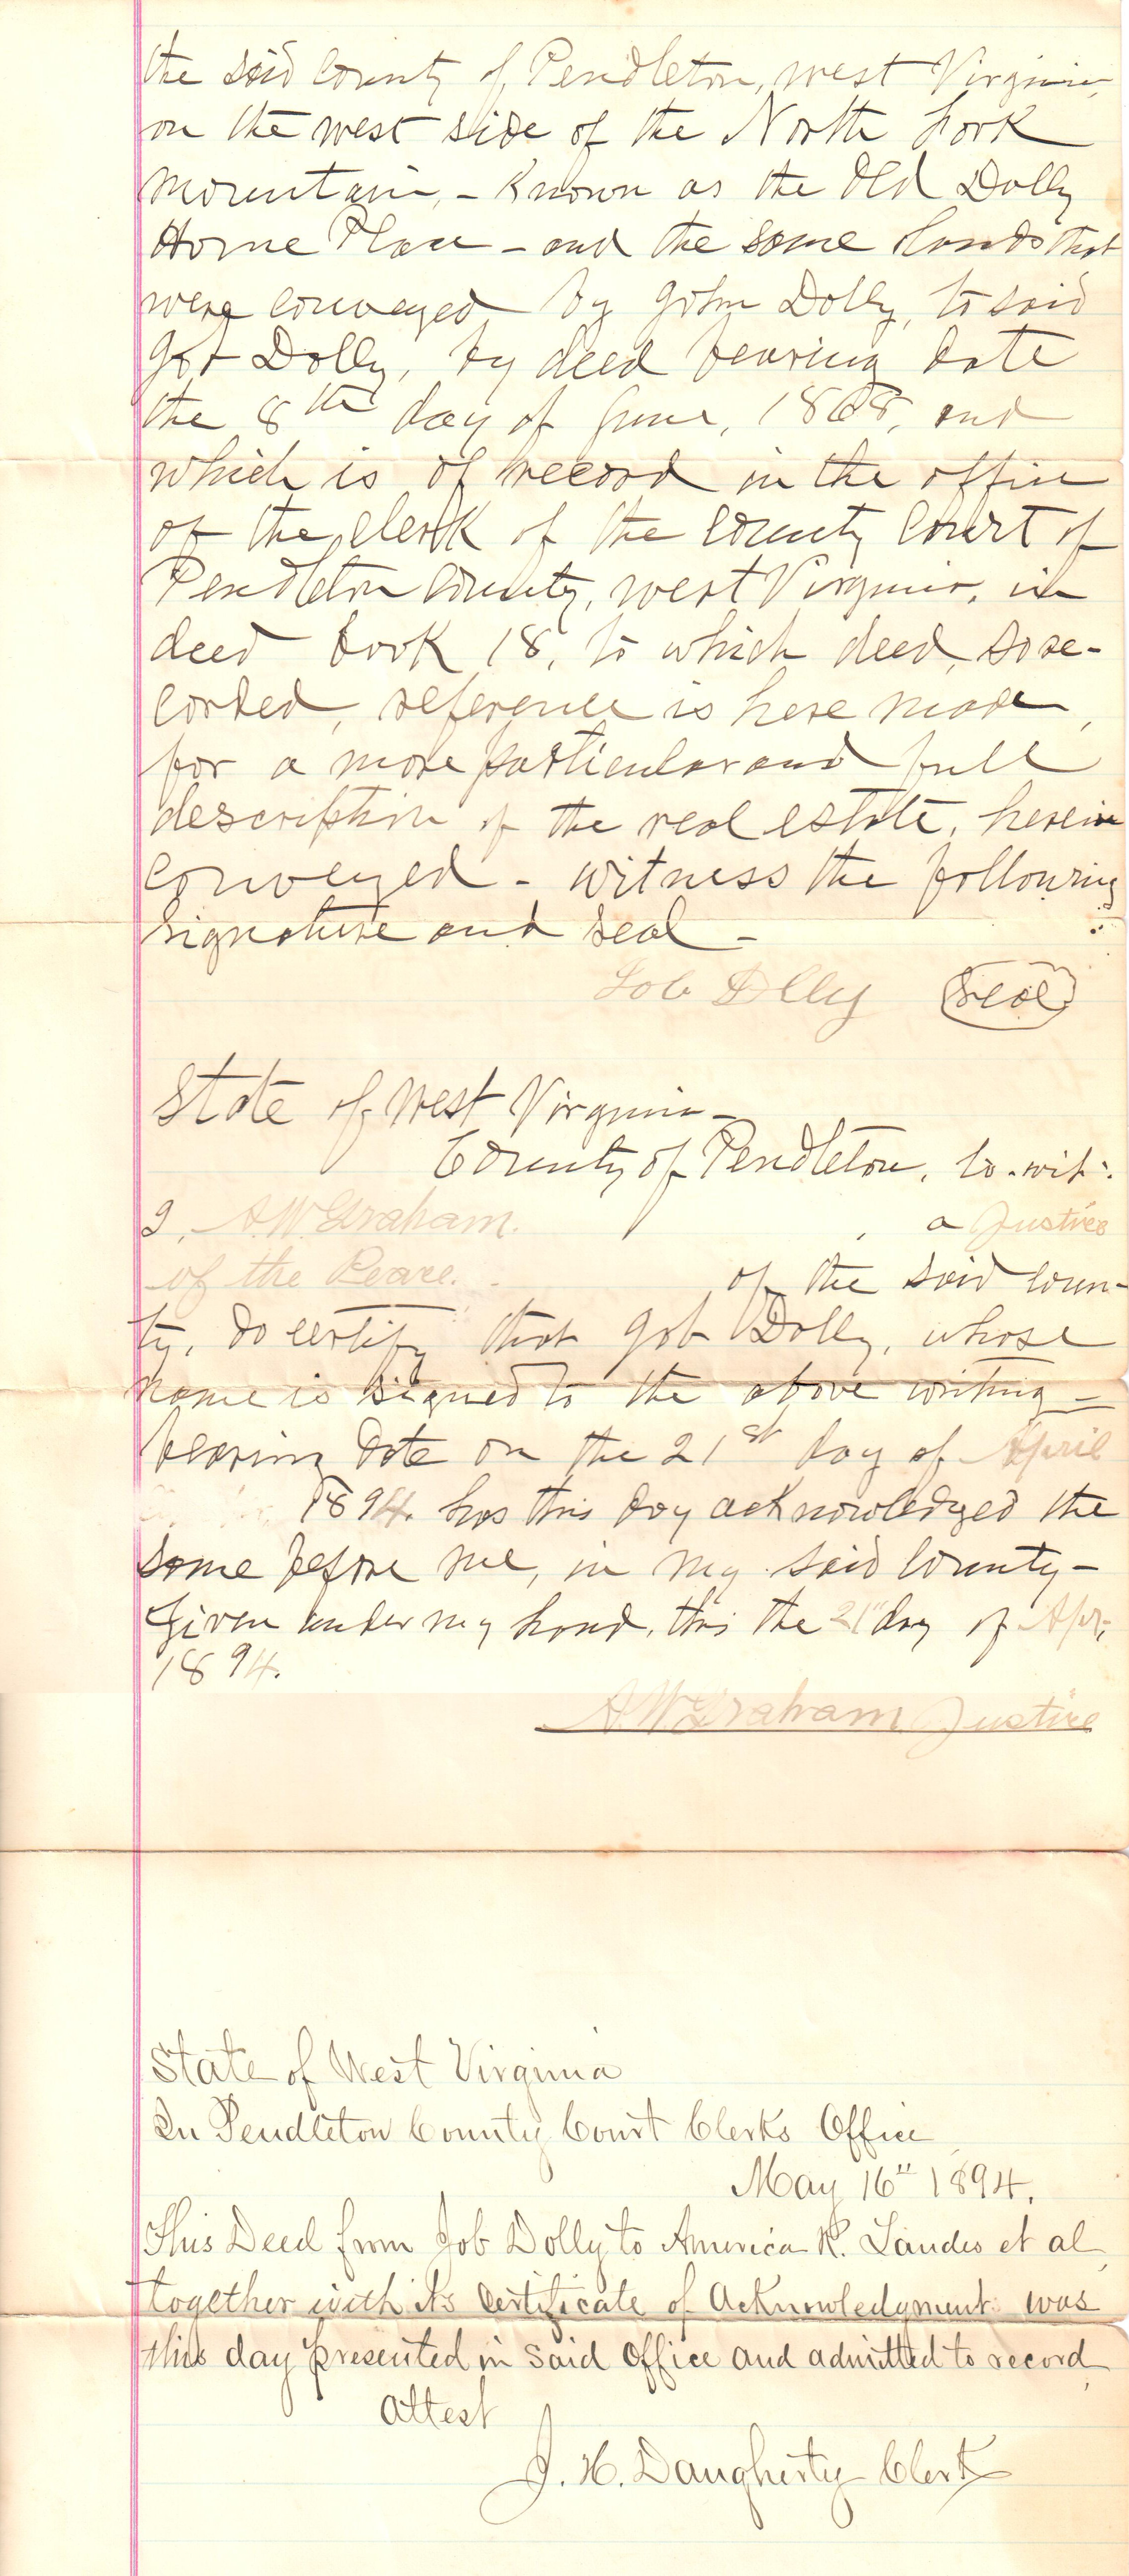 the said County of Pendleton, west Virginia,
on the west side of the North Fork
Mountain, - Known as the Old Dolly
Home Place - and the same lands that
were conveyed by John Dolly, to said
Job Dolly, by deed bearing date
the 8th day of June, 1868, and
which is of record in the office
of the Clerk of the County Court of
Pendleton County, west Virginia, in
deed book 18, to which deed, so re-
corded, reference is here made,
for a more particular and full
description of the real estate, herein
conveyed - witness the following
signature and seal -
Job Dolly Seal
State of West Virginia -
County of Pendleton, to-wit:
I, A W Graham. , a Justice
of the Peace. of the said Coun-
ty, do certify that Job Dolly, whose
name is signed to the above writing -
bearing date on the 21st day of April
1894. has this day acknowledged the
same before me, in my said County -
Given under my hand, this the 21" day of Apr,
1894.
A W Graham Justice
State of West Virginia
In Pendleton County Court Clerks Office
May 16" 1894.
This Deed from Job Dolly to America K. Landes et al
together with its Certificate of Acknowledgment was
this day presented in Said Office and admitted to record
Attest
J. H. Daugherty Clerk